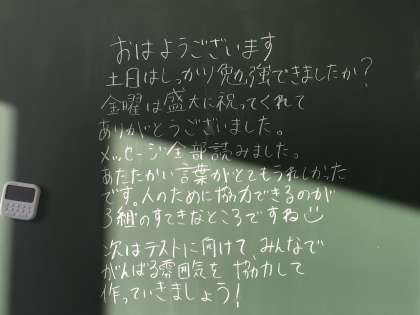 おはようございます
土日はしっかり勉強できましたか?
金曜は盛大に祝ってくれて
ありがとうございました。
メッセージ全部読みました。
あたたかい言葉がとてもうれしかった
です。人のために協力できるのが
3組のすてきなところですね
次はテストに向けて、みんなで
がんばる雰囲気を協力して
作っていきましょう!